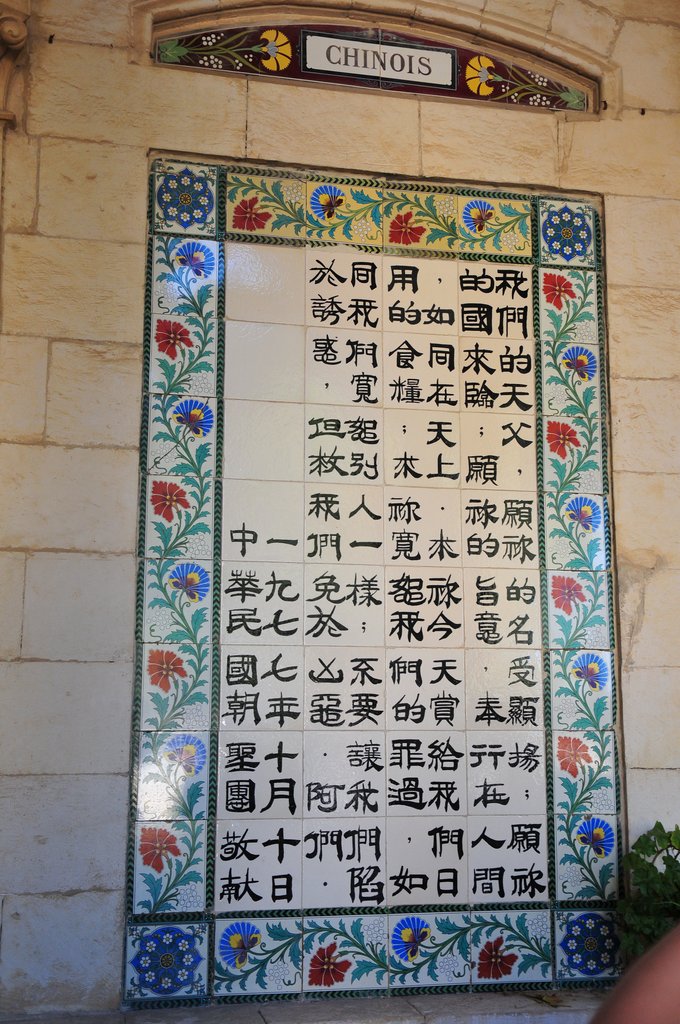 CHINOIS
我們的天父，願祢的名受顯揚；願祢
的國來臨；願祢的旨意，奉行在人間
，如同在天上．求祢今天賞給我們日
用的食糧；求祢寬恕我們的罪過，如
同我們寬恕別人一樣；不要讓我們陷
於誘惑，但救我們免於凶惡．阿們．
一九七七年十月十日
中華民國朝聖團敬獻